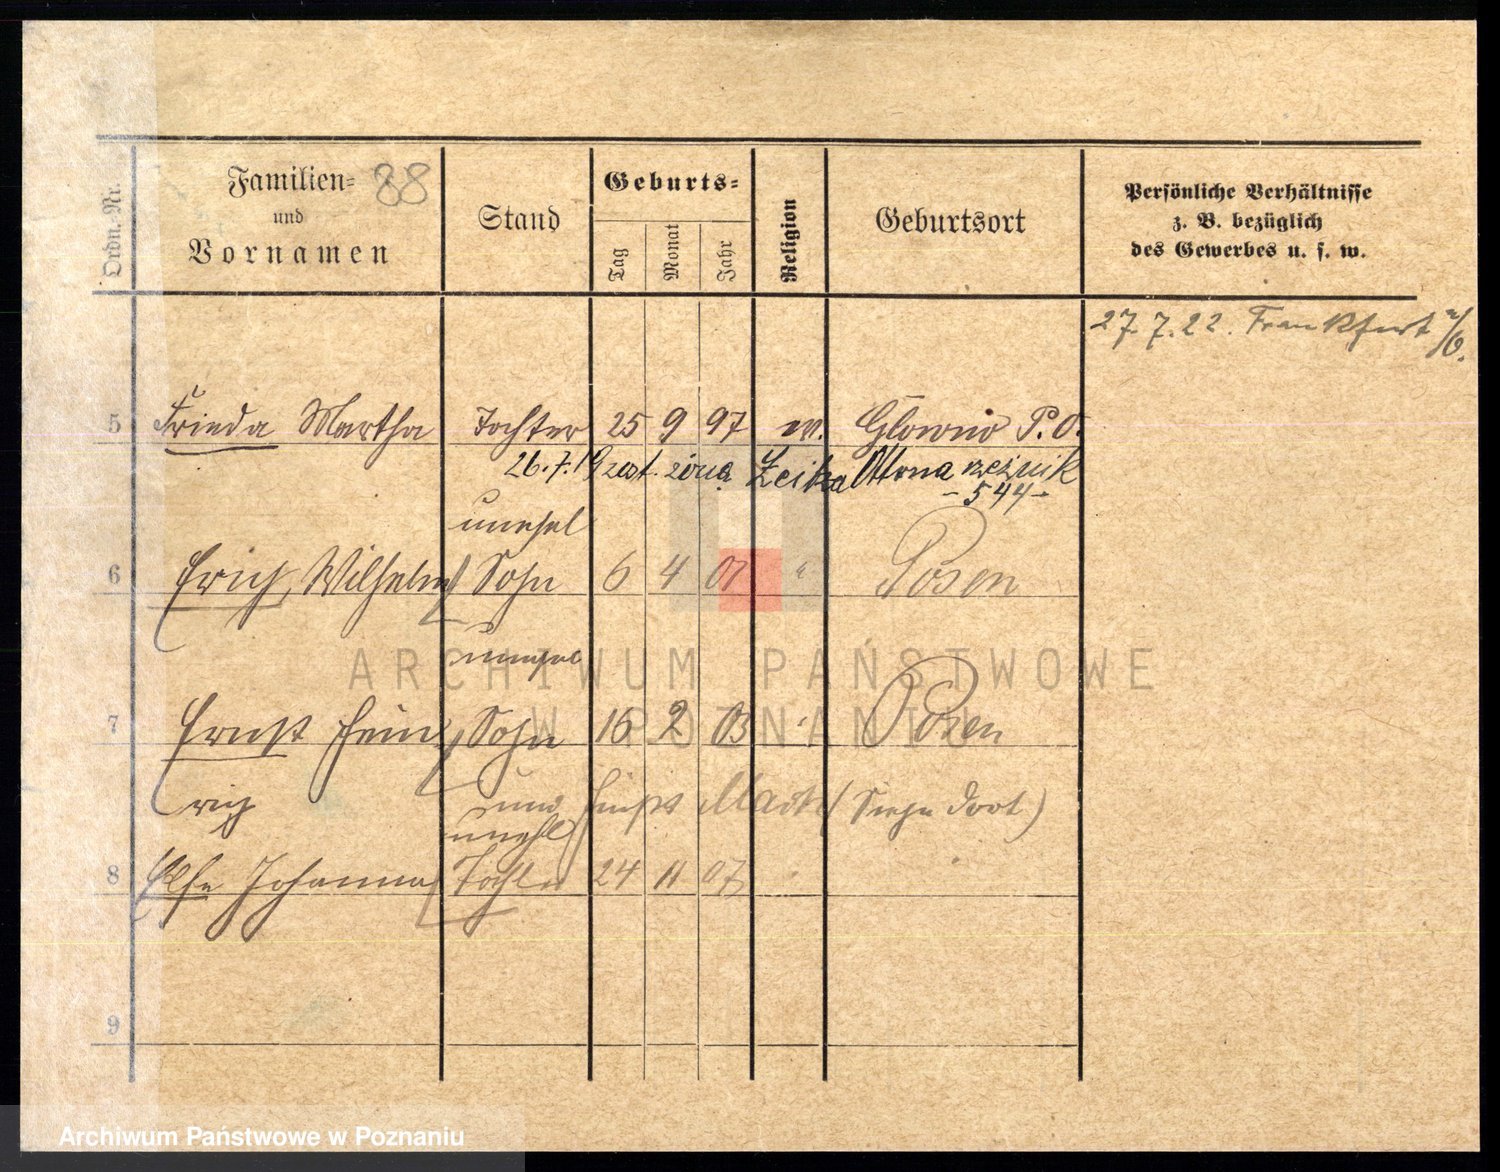 Ordn.-Nr.
Familien-
und
Vornamen
88
Stand
Geburts-
Tag
Monat
Jahr
Religion
Geburtsort
Persönliche Verhältnisse
z. B. bezüglich
des Gewerbes u. s. w.
27. 7. 22. Frankfurt a/O.
5 Frieda Martha Tochter 25 9 97 ev. Glowno P. O.
26.7.19 zost. żoną Ottona rzeźnik
- 544 -
unehel
6 Erich Wilhelm Sohn 6 4 01 " Posen
unehel
7 Ernst Hein Sohn 16 2 03 " Posen
rich und (Siehe dort)
unehl
8 Else Johanna Tochter 24 11 07
9
ARCHIWUM PAŃSTWOWE
W POZNANIU
Archiwum Państwowe w Poznaniu